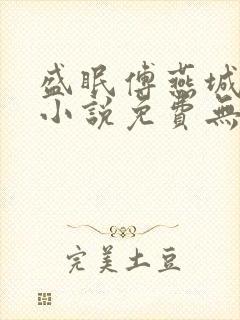 盛眠傅燕城
小說免費無
完美土豆